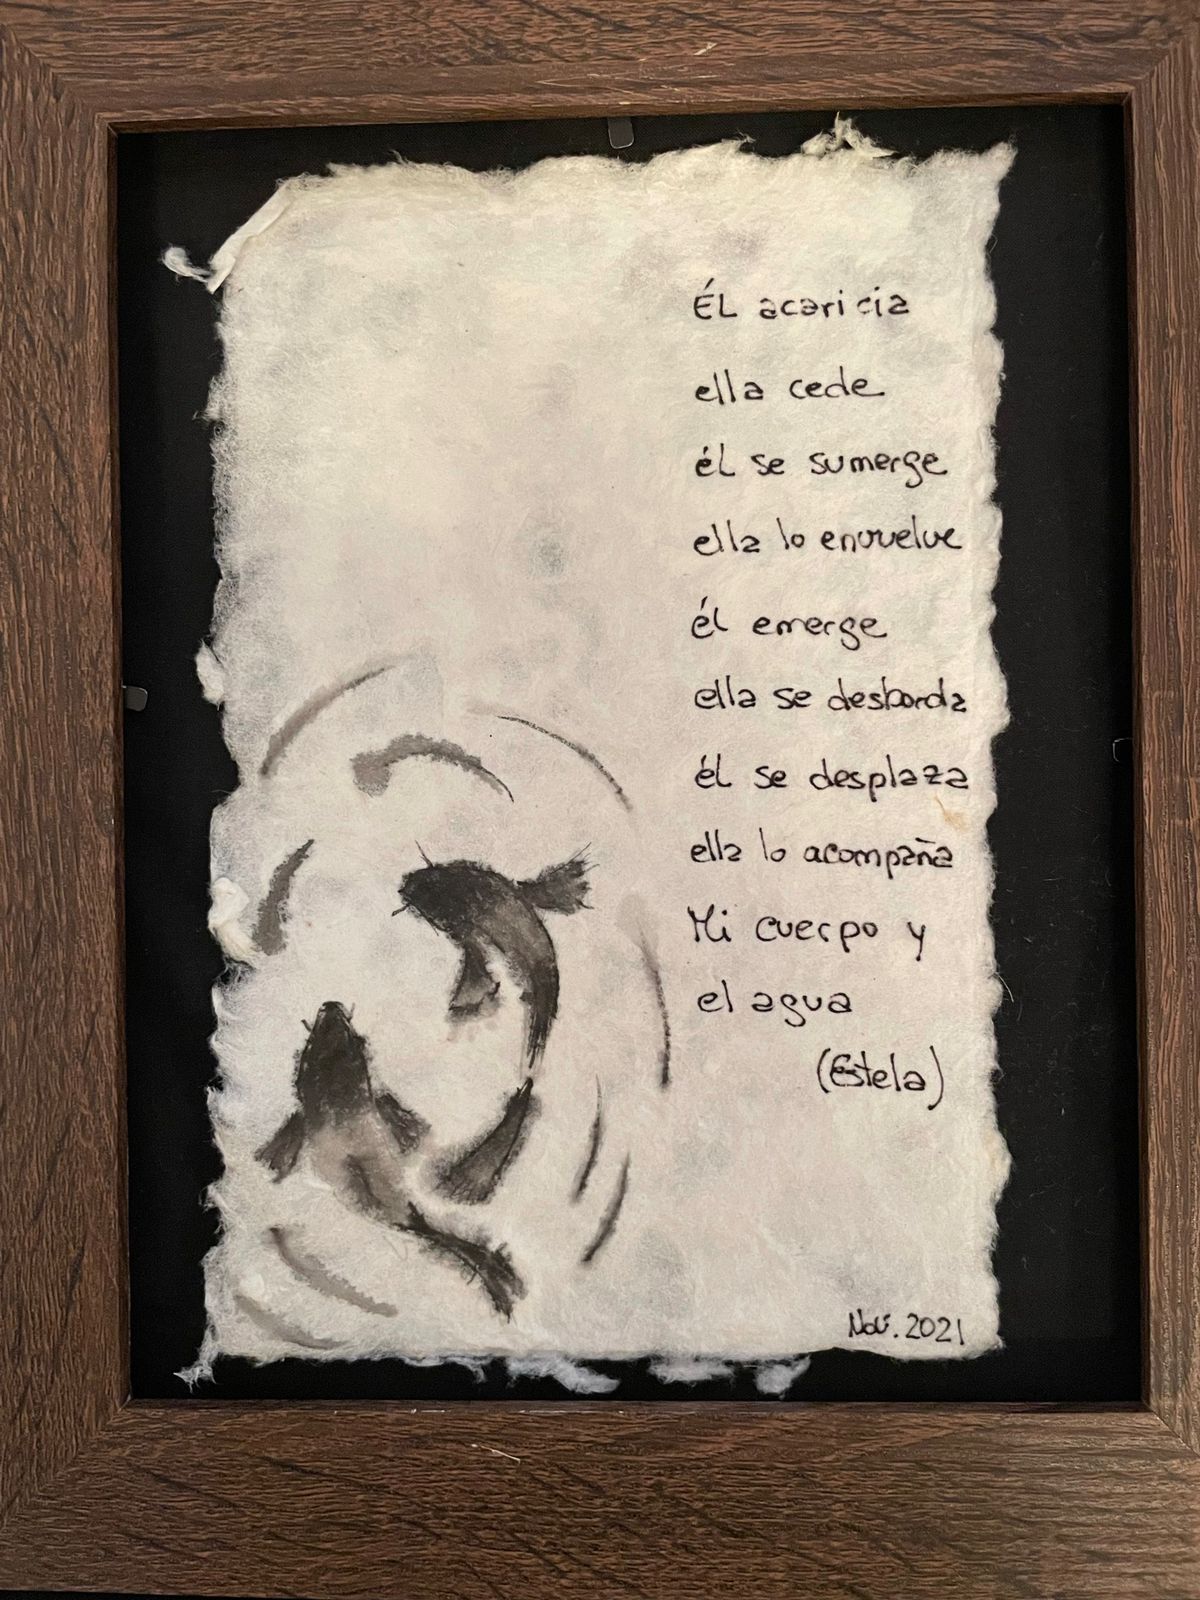 ÉL acaricia
ella cede
él se sumerge
ella lo envuelve
él emerge
ella se desborda
él se desplaza
ella lo acompaña
Mi cuerpo y
el agua
(Estela)
Nov. 2021